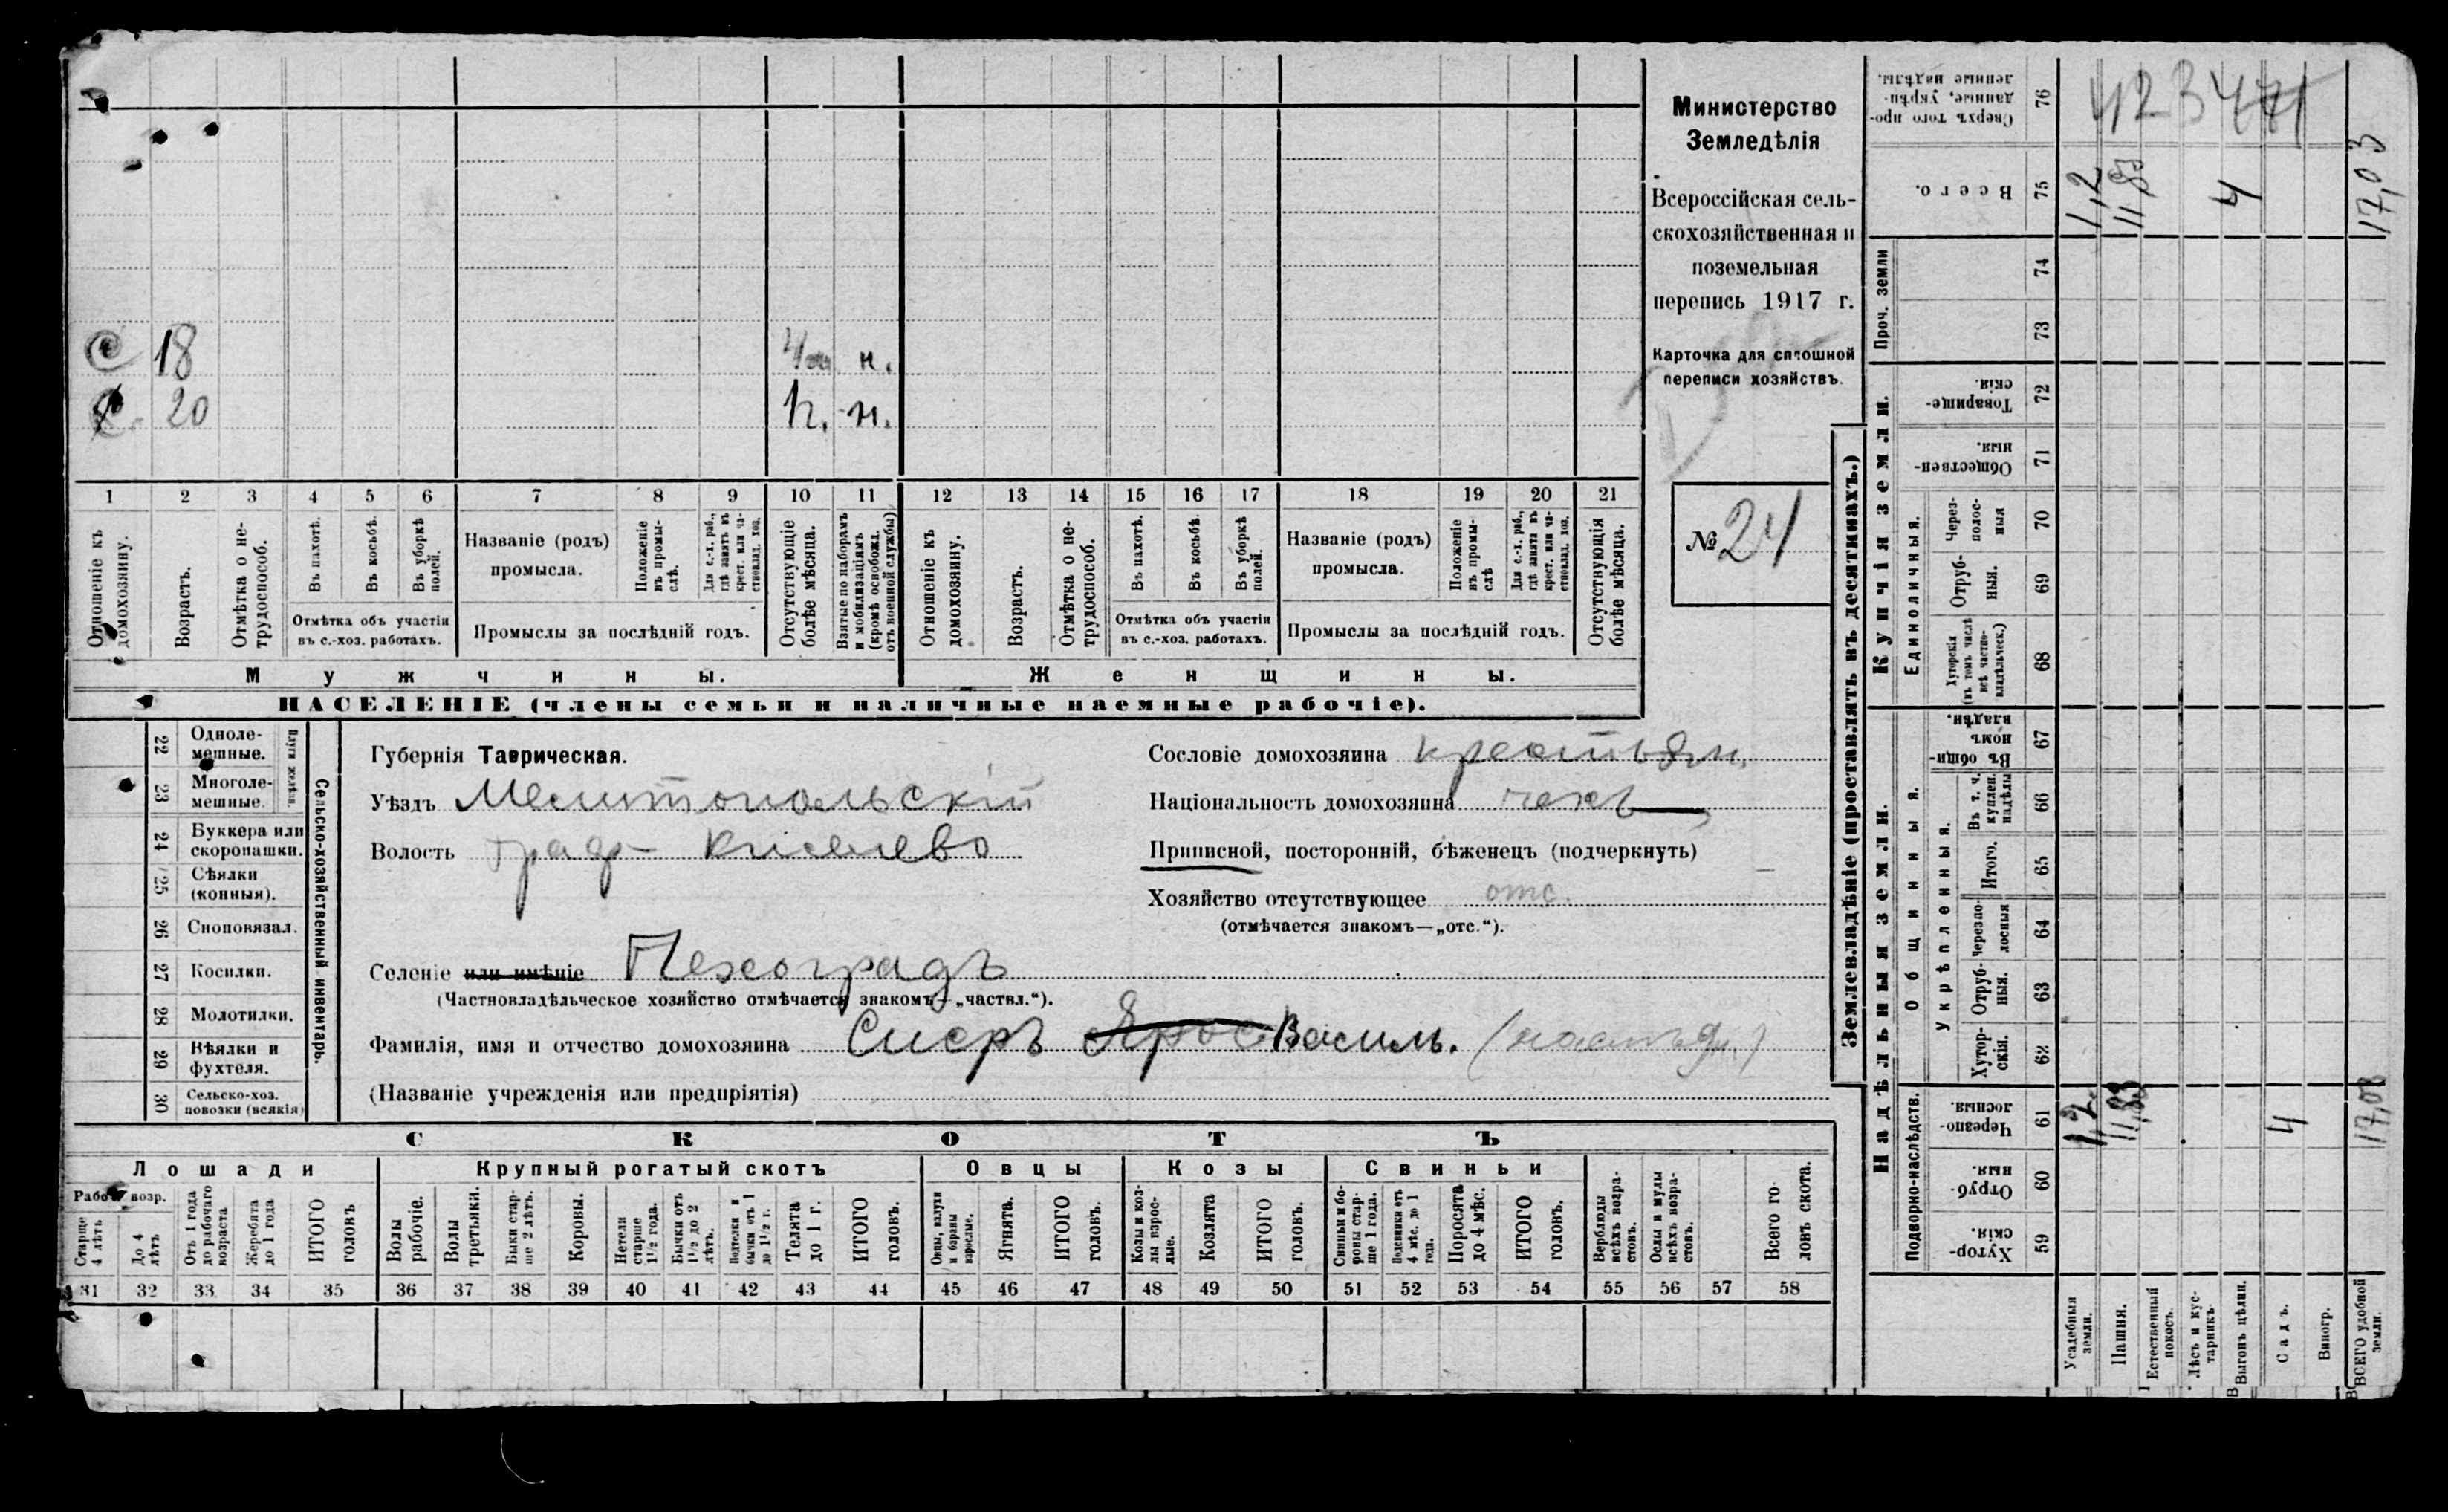 Министерство
Земледѣлія
Всероссійская сель-
скохозяйственная и
поземельная
перепись 1917 г.
Карточка для сплошной
переписи хозяйствъ.
№ 24
С 18 н.
С. 20 н. н.
1 2 3 4 5 6 7 8 9 10 11 12 13 14 15 16 17 18 19 20 21
Отношеніе къ домохозяину.
Возрастъ.
Отмѣтка о не-трудоспособ.
Въ пахотѣ.
Въ косьбѣ.
Въ уборкѣ полей.
Отмѣтка объ участіи
въ с.-хоз. работахъ.
Названіе (родъ)
промысла.
Положеніе въ промы-слѣ.
Для с.-х. раб., гдѣ занятъ въ крест. или ча-стновлад. хоз.
Промыслы за послѣдній годъ.
Отсутствующіе болѣе мѣсяца.
Взятые по наборамъ и мобилизаціямъ (кромѣ освобожд. отъ военной службы)
Отношеніе къ домохозяину.
Возрастъ.
Отмѣтка о не-трудоспособ.
Въ пахотѣ.
Въ косьбѣ.
Въ уборкѣ полей.
Отмѣтка объ участіи
въ с.-хоз. работахъ.
Названіе (родъ)
промысла.
Положеніе въ промы-слѣ
Для с.-х. раб., гдѣ занята въ крест. или ча-стновлад. хоз.
Промыслы за послѣдній годъ.
Отсутствующія болѣе мѣсяца.
Мужчины.
Женщины.
НАСЕЛЕНІЕ (члены семьи и наличные наемные рабочіе).
Сельско-хозяйственный инвентарь.
Плуги желѣзн.
22 Одноле-мешные.
23 Многоле-мешные.
24 Буккера или скоропашки.
25 Сѣялки (конныя).
26 Сноповязал.
27 Косилки.
28 Молотилки.
29 Вѣялки и фухтеля.
30 Сельско-хоз. повозки (всякія)
Губернія Таврическая.
Уѣздъ Мелитопольскій
Волость граф- Киселево
Селеніе или имѣніе Чехоградъ
(Частновладѣльческое хозяйство отмѣчается знакомъ—„частвл.“).
Фамилія, имя и отчество домохозяина Сисръ Василь. (наслѣдн.)
(Названіе учрежденія или предпріятія)
Сословіе домохозяина крестьян.
Національность домохозяина чехъ
Приписной, посторонній, бѣженецъ (подчеркнуть)
Хозяйство отсутствующее отс.
(отмѣчается знакомъ—„отс.“).
СКОТЪ
Лошади
Рабоч. возр.
Старше 4 лѣтъ
До 4 лѣтъ
Отъ 1 года до рабочаго возраста
Жеребята до 1 года
ИТОГО головъ
Крупный рогатый скотъ
Волы рабочіе.
Волы третьяки.
Быки стар-ше 2 лѣтъ.
Коровы.
Нетели старше 1½ года.
Бычки отъ 1½ до 2 лѣтъ.
бычки отъ 1 до 1½ г.
Телята до 1 г.
ИТОГО головъ.
Овцы
Овцы, валухи и бараны взрослые.
Ягнята.
ИТОГО головъ.
Козы
Козы и коз-лы взрос-лые.
Козлята
ИТОГО головъ.
Свиньи
Свиньи и бо-ровы стар-ше 1 года.
Подсвинки отъ 4 мѣс. до 1 года.
Поросята до 4 мѣс.
ИТОГО головъ.
Верблюды всѣхъ возра-стовъ.
Ослы и мулы всѣхъ возра-стовъ.
Всего го-ловъ скота.
31 32 33 34 35 36 37 38 39 40 41 42 43 44 45 46 47 48 49 50 51 52 53 54 55 56 57 58
Землевладѣніе (проставлять въ десятинахъ.)
Купчія земли.
Проч. земли
Надѣльныя земли.
Сверхъ того про-данные, укрѣп-ленные надѣлы. 76
Всего. 75 1,2 11,83 4 17,03
74
73
Товарище-скія. 72
Обществен-ныя. 71
Единоличныя.
Через-полос-ныя 70
Отруб-ныя. 69
Хуторскія (въ томъ числѣ всѣ частно-владѣльческ.) 68
Общинныя.
Въ общи-номъ владѣн. 67
Укрѣпленныя.
Въ т. ч. куплен. надѣлы 66
Итого. 65
Черезпо-лосныя 64
Отруб-ныя. 63
Хутор-скія. 62
Подворно-наслѣдств.
Черезпо-лосныя. 61 1,2 11,83 4 17,03
Отруб-ныя. 60
Хутор-скія. 59
Усадебныя земли.
Пашня.
Естественный покосъ.
Лѣсъ и кус-тарникъ.
Выгонъ цѣлин.
Садъ.
Виногр.
ВСЕГО удобной земли.